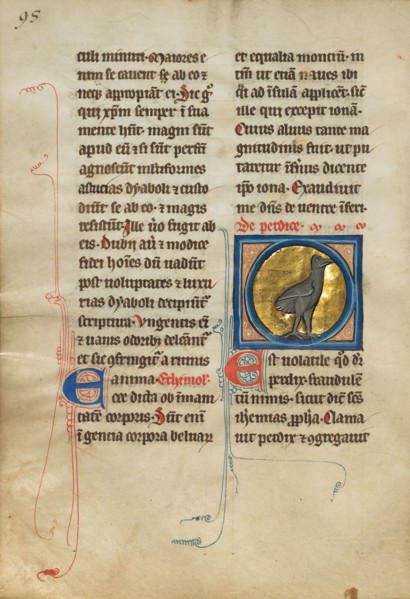 95
culi minuti. Maiores e
nim se cauent se ab eo ⁊
neqꝫ appropiant ei. Sic gͦ
qui xp̄m semper ī sua
mente hn̄t. magni sūt
apud eū ⁊ si sūt perfcī
agnoscūt multiformes
astucias dyaboli ⁊ custo
diūt se ab eo. ⁊ magis
resistūt. Ille uͦ fugit ab
eis. Dubii aūt ⁊ modice
fidei hoīes dū uadūt
post uoluptates ⁊ luxu
rias dyaboli decipiūtͬ
scriptura. Vngentis eī
⁊ uariis odoribꝫ delectāt
et sic ꝯfringitͬ a ruinis
anima. Ethimol.
Cete dicta ob īmani
tatē corporis. Sūt enī
ī gencia corpora beluarͬ
et equalia monciū. in
tm̄ ut etiā naues ibi
qͥ ad īsulā applicēt. Sic
ille qui excepit ionā.
Cuius aluus tante ma
gnitudinis fuit. ut pu
taretur īfernus dicente
ip̄o iona. Exaudiuit
me dn̄s de uentre īferi.
De perdice.
Est uolatile qͦd dr̄
perdix. fraudulē
tū nimis. sicut dic̄ scs̄
ihemias ꝓpha. Clama
uit perdix ⁊ ꝯgregauit